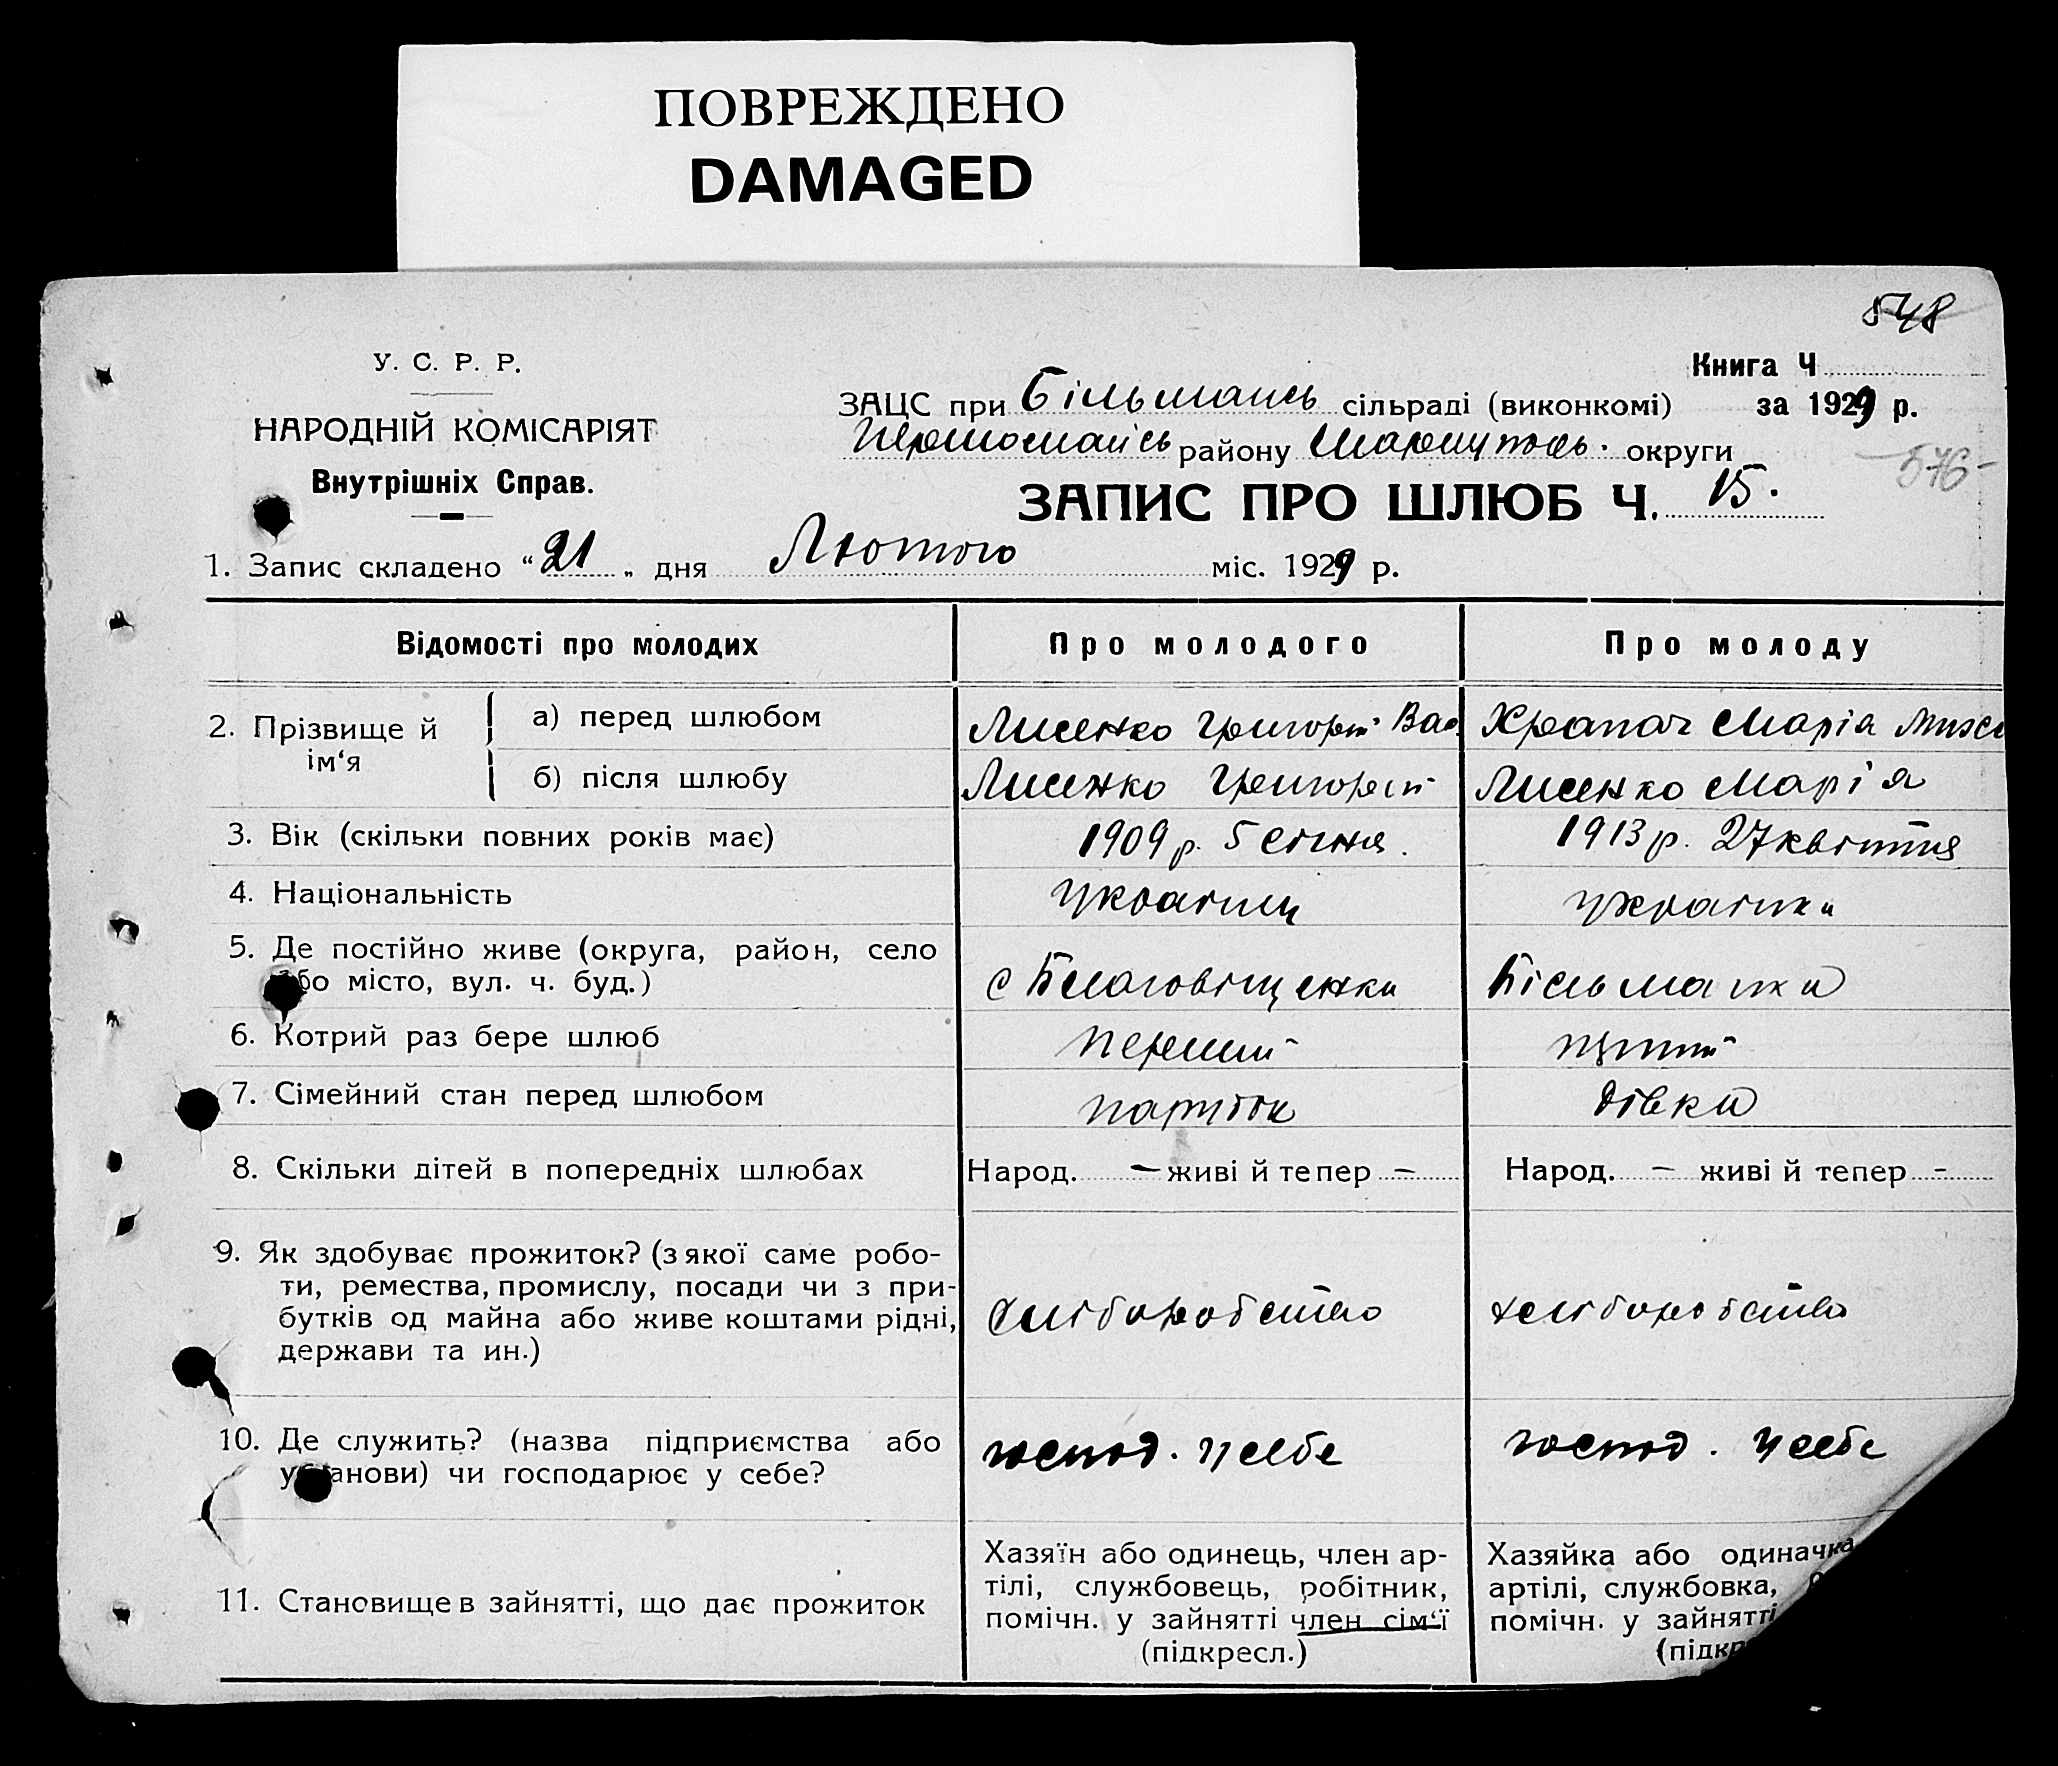 ПОВРЕЖДЕНО
DAMAGED
548
У. С. Р. Р.
Книга Ч
НАРОДНІЙ КОМІСАРІЯТ
Внутрішніх Справ.
ЗАЦС при Більмансь сільраді (виконкомі) за 1929 р.
Першомайсь району Маріупось. округи
576
ЗАПИС ПРО ШЛЮБ Ч. 15.
1. Запис складено “21„ дня Лютого міс. 1929 р.
Відомості про молодих
Про молодого
Про молоду
2. Прізвище й ім‘я
а) перед шлюбом
Лисенко Григорій Вас.
Храпач Марія Миха
б) після шлюбу
Лисенко Григорій
Лисенко Марія
3. Вік (скільки повних років має)
1909 р. 5 січня.
1913 р. 27 квітня
4. Національність
Українц
українка
5. Де постійно живе (округа, район, село
або місто, вул. ч. буд.)
с Благовіщенка
Більманка
6. Котрий раз бере шлюб
перший
перший
7. Сімейний стан перед шлюбом
парубок
дівка
8. Скільки дітей в попередніх шлюбах
Народ. — живі й тепер —
Народ. — живі й тепер -
9. Як здобуває прожиток? (з якої саме робо-
ти, ремества, промислу, посади чи з при-
бутків од майна або живе коштами рідні,
держави та ин.)
хліборобство
хліборобство
10. Де служить? (назва підприємства або
установи) чи господарює у себе?
господ. у себе
господ. у себе
11. Становище в зайнятті, що дає прожиток
Хазяїн або одинець, член ар-
тілі, службовець, робітник,
помічн. у зайнятті член сім‘ї
(підкресл.)
Хазяйка або одиначка
артілі, службовка,
помічн. у зайнятті
(підкр